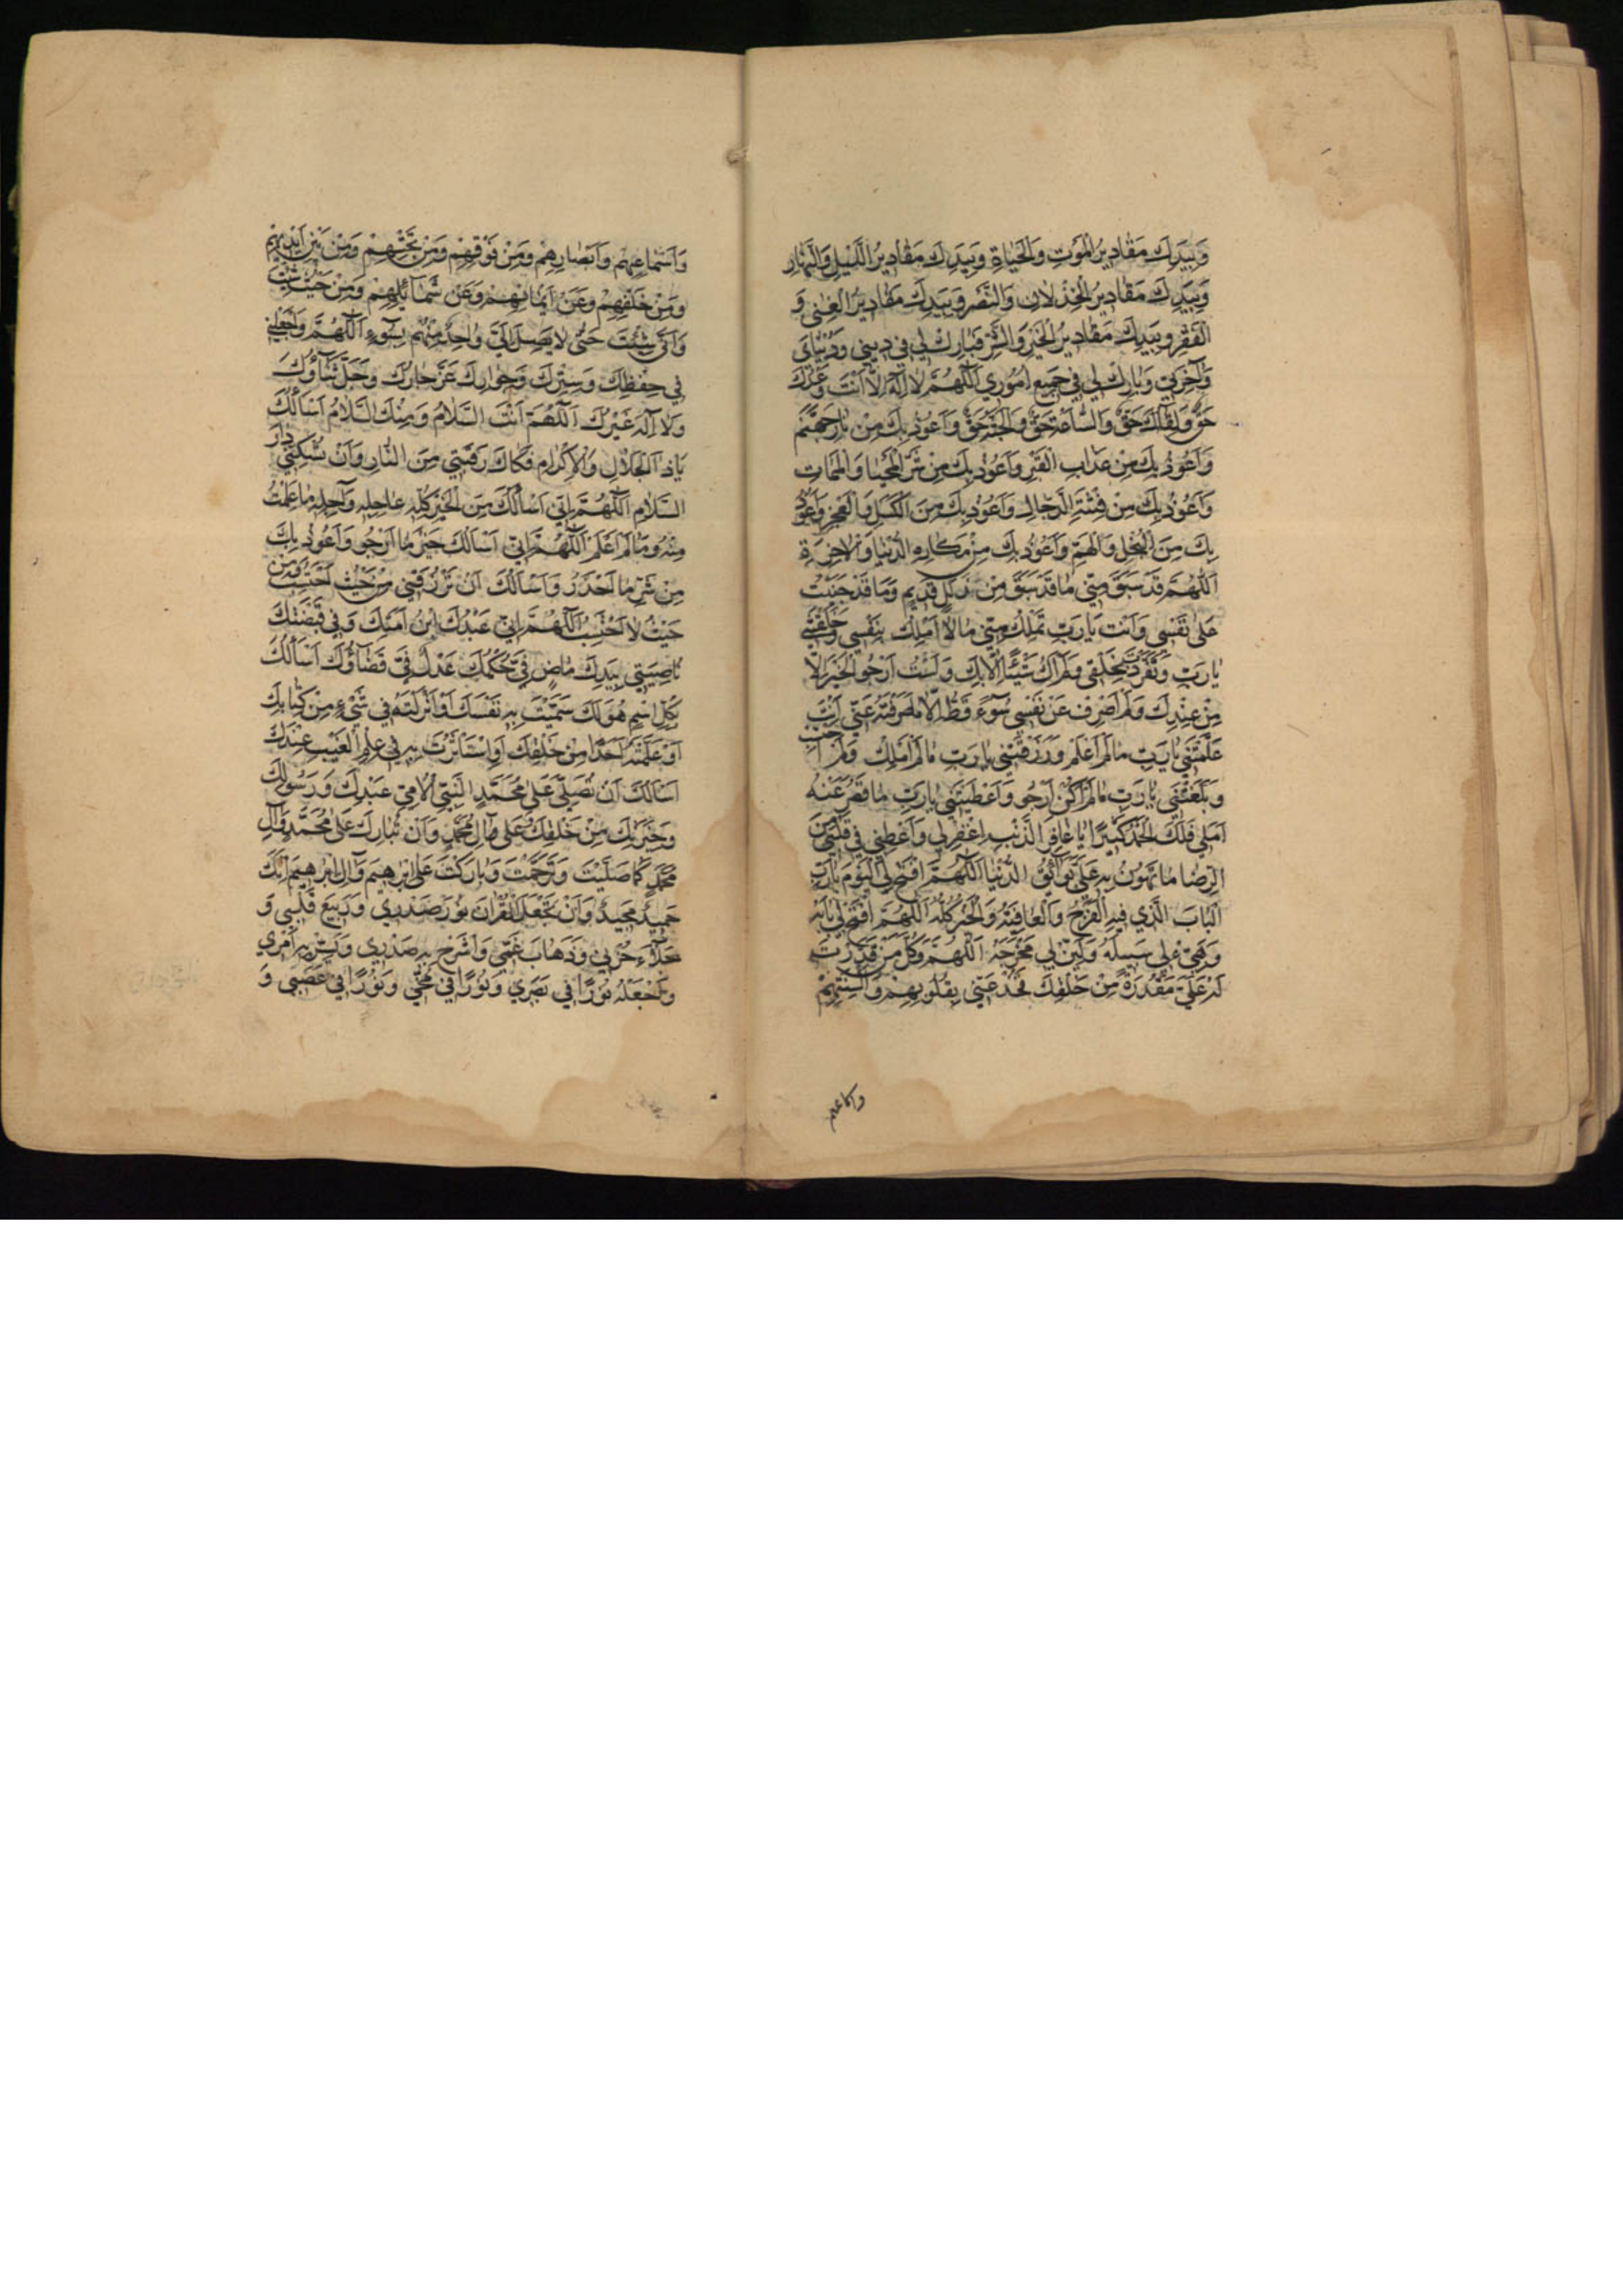 وَبِيَدِكَ مَقَادِيرُ الْمَوْتِ وَالْحَيَاةِ وَبِيَدِكَ مَقَادِيرُ اللَّيْلِ وَالنَّهَارِ
وَبِيَدِكَ مَقَادِيرُ الْخِذْلَانِ وَالنَّصْرِ وَبِيَدِكَ مَقَادِيرُ الْغِنَى وَ
الْفَقْرِ وَبِيَدِكَ مَقَادِيرُ الْخَيْرِ وَالشَّرِّ فَبَارِكْ لِي فِي دِينِي وَدُنْيَايَ
وَآخِرَتِي وَبَارِكْ لِي فِي جَمِيعِ أُمُورِي اَللّٰهُمَّ لَا إِلٰهَ إِلَّا أَنْتَ وَعْدُكَ
حَقٌّ وَلِقَاؤُكَ حَقٌّ وَالسَّاعَةُ حَقٌّ وَالْجَنَّةُ حَقٌّ وَأَعُوذُ بِكَ مِنْ نَارِ جَهَنَّمَ
وَأَعُوذُ بِكَ مِنْ عَذَابِ الْقَبْرِ وَأَعُوذُ بِكَ مِنْ شَرِّ الْمَحْيَا وَالْمَمَاتِ
وَأَعُوذُ بِكَ مِنْ فِتْنَةِ الدَّجَّالِ وَأَعُوذُ بِكَ مِنَ الْكَسَلِ وَالْعَجْزِ وَأَعُوذُ
بِكَ مِنَ الْبُخْلِ وَالْهَمِّ وَأَعُوذُ بِكَ مِنْ مَكَارِهِ الدُّنْيَا وَالْآخِرَةِ
اَللّٰهُمَّ قَدْ سَبَقَ مِنِّي مَا قَدْ سَبَقَ مِنْ زَلَلٍ قَدِيمٍ وَمَا قَدْ جَنَيْتُ
عَلَى نَفْسِي وَأَنْتَ يَا رَبِّ تَمْلِكُ مِنِّي مَا لَا أَمْلِكُ بِنَفْسِي وَخَلَقْتَنِي
يَا رَبِّ وَتَفَرَّدْتَ بِخَلْقِي وَلَمْ أَكُ شَيْئًا إِلَّا بِكَ وَلَسْتُ أَرْجُو الْخَيْرَ إِلَّا
مِنْ عِنْدِكَ وَلَمْ أَصْرِفْ عَنْ نَفْسِي سُوءً قَطُّ إِلَّا مَا صَرَفْتَهُ عَنِّي أَنْتَ
عَلَّمْتَنِي يَا رَبِّ مَا لَمْ أَعْلَمْ وَرَزَقْتَنِي يَا رَبِّ مَا لَمْ أَمْلِكْ وَلَمْ أَحْتَسِبْ
وَبَلَّغْتَنِي يَا رَبِّ مَا لَمْ أَكُنْ أَرْجُو وَأَعْطَيْتَنِي يَا رَبِّ مَا قَصُرَ عَنْهُ
أَمَلِي فَلَكَ الْحَمْدُ كَثِيرًا يَا غَافِرَ الذَّنْبِ اغْفِرْ لِي وَأَعْطِنِي فِي قَلْبِي مِنَ
الرِّضَا مَا تُهَوِّنُ بِهِ عَلَيَّ بَوَائِقَ الدُّنْيَا اَللّٰهُمَّ افْتَحْ لِيَ الْيَوْمَ يَا رَبِّ
الْبَابَ الَّذِي فِيهِ الْفَرَجُ وَالْعَافِيَةُ وَالْخَيْرُ كُلُّهُ اَللّٰهُمَّ افْتَحْ لِي بَابَهُ
وَهَيِّئْ لِي سَبِيلَهُ وَلَيِّنْ لِي مَخْرَجَهُ اَللّٰهُمَّ وَكُلُّ مَنْ قَدَّرْتَ
لَهُ عَلَيَّ مَقْدُرَةً مِنْ خَلْقِكَ فَخُذْ عَنِّي بِقُلُوبِهِمْ وَأَلْسِنَتِهِمْ
واسماعهم
وَأَسْمَاعِهِمْ وَأَبْصَارِهِمْ وَمِنْ فَوْقِهِمْ وَمِنْ تَحْتِهِمْ وَمِنْ بَيْنِ أَيْدِيهِمْ
وَمِنْ خَلْفِهِمْ وَعَنْ أَيْمَانِهِمْ وَعَنْ شَمَائِلِهِمْ وَمِنْ حَيْثُ شِئْتَ
وَأَنَّى شِئْتَ حَتَّى لَا يَصِلَ إِلَيَّ وَاحِدٌ مِنْهُمْ بِسُوءٍ اَللّٰهُمَّ وَاجْعَلْنِي
فِي حِفْظِكَ وَسِتْرِكَ وَجِوَارِكَ عَزَّ جَارُكَ وَجَلَّ ثَنَاؤُكَ
وَلَا إِلٰهَ غَيْرُكَ اَللّٰهُمَّ أَنْتَ السَّلَامُ وَمِنْكَ السَّلَامُ أَسْأَلُكَ
يَا ذَا الْجَلَالِ وَالْإِكْرَامِ فَكَاكَ رَقَبَتِي مِنَ النَّارِ وَأَنْ تُسْكِنَنِي دَارَ
السَّلَامِ اَللّٰهُمَّ إِنِّي أَسْأَلُكَ مِنَ الْخَيْرِ كُلِّهِ عَاجِلِهِ وَآجِلِهِ مَا عَلِمْتُ
مِنْهُ وَمَا لَمْ أَعْلَمْ اَللّٰهُمَّ إِنِّي أَسْأَلُكَ خَيْرَ مَا أَرْجُو وَأَعُوذُ بِكَ
مِنْ شَرِّ مَا أَحْذَرُ وَأَسْأَلُكَ أَنْ تَرْزُقَنِي مِنْ حَيْثُ أَحْتَسِبُ وَمِنْ
حَيْثُ لَا أَحْتَسِبُ اَللّٰهُمَّ إِنِّي عَبْدُكَ ابْنُ أَمَتِكَ وَفِي قَبْضَتِكَ
نَاصِيَتِي بِيَدِكَ مَاضٍ فِيَّ حُكْمُكَ عَدْلٌ فِيَّ قَضَاؤُكَ أَسْأَلُكَ
بِكُلِّ اسْمٍ هُوَ لَكَ سَمَّيْتَ بِهِ نَفْسَكَ أَوْ أَنْزَلْتَهُ فِي شَيْءٍ مِنْ كِتَابِكَ
أَوْ عَلَّمْتَهُ أَحَدًا مِنْ خَلْقِكَ أَوِ اسْتَأْثَرْتَ بِهِ فِي عِلْمِ الْغَيْبِ عِنْدَكَ
أَسْأَلُكَ أَنْ تُصَلِّيَ عَلَى مُحَمَّدٍ النَّبِيِّ الْأُمِّيِّ عَبْدِكَ وَرَسُولِكَ
وَخِيَرَتِكَ مِنْ خَلْقِكَ وَعَلَى آلِ مُحَمَّدٍ وَأَنْ تُبَارِكَ عَلَى مُحَمَّدٍ وَآلِ
مُحَمَّدٍ كَمَا صَلَّيْتَ وَتَرَحَّمْتَ وَبَارَكْتَ عَلَى إِبْرٰهِيمَ وَآلِ إِبْرٰهِيمَ إِنَّكَ
حَمِيدٌ مَجِيدٌ وَأَنْ تَجْعَلَ الْقُرْآنَ نُورَ صَدْرِي وَرَبِيعَ قَلْبِي وَ
جَلَاءَ حُزْنِي وَذَهَابَ غَمِّي وَاشْرَحْ بِهِ صَدْرِي وَيَسِّرْ بِهِ أَمْرِي
وَاجْعَلْهُ نُورًا فِي بَصَرِي وَنُورًا فِي مُخِّي وَنُورًا فِي عَصَبِي وَ